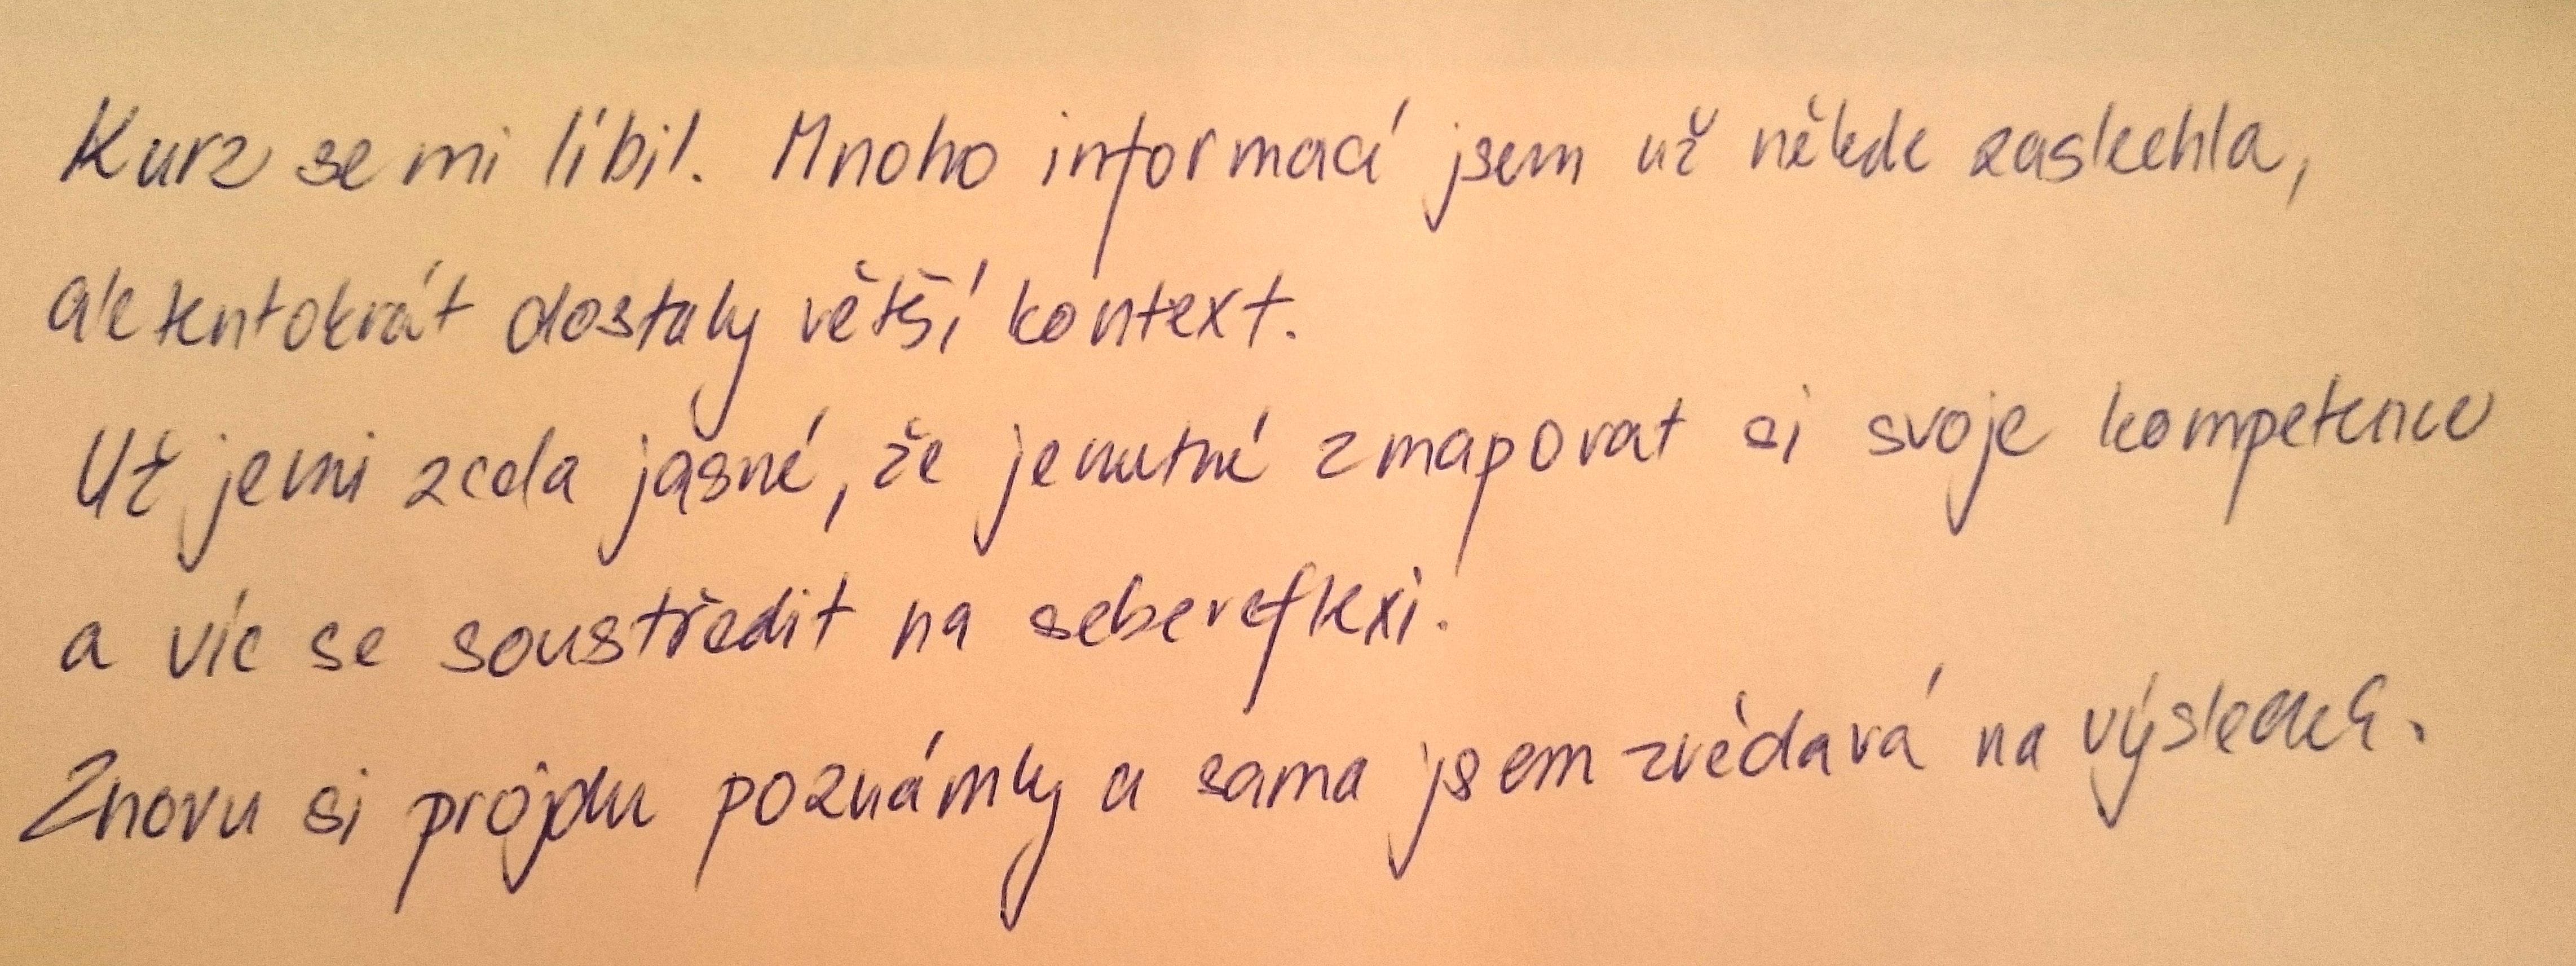 Kurz se mi líbil. Mnoho informací jsem už někde zaslechla,
ale tentokrát dostaly větší kontext.
Už je mi zcela jasné, že je nutné zmapovat si svoje kompetence
a víc se soustředit na sebereflexi.
Znovu si projdu poznámky a sama jsem zvědavá na výsledek.